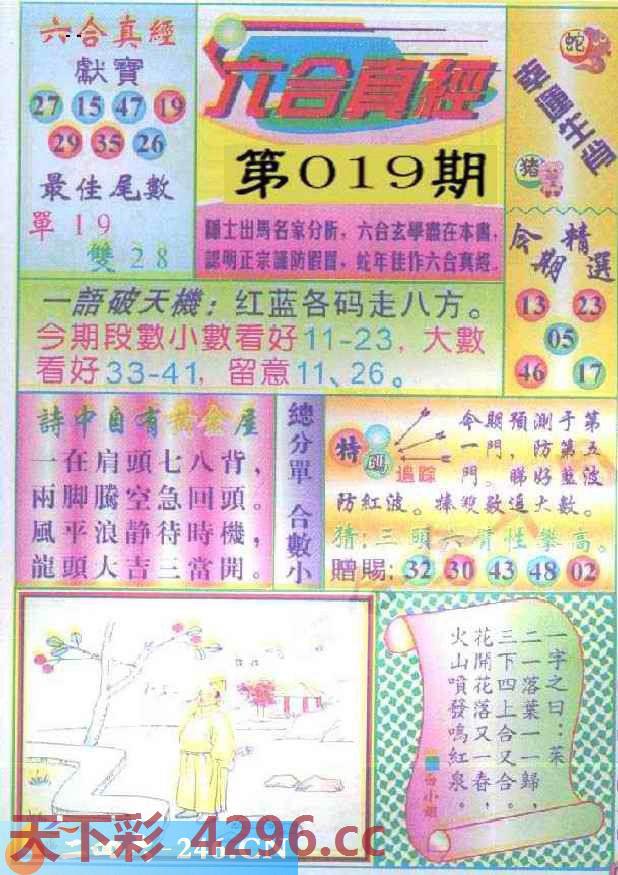 六合真經
獻寶
27 15 47 19
29 35 26
最佳尾數
單19
雙28
六合真經
第019期
隱士出馬名家分析，六合玄學盡在本書，
認明正宗謹防假冒，蛇年佳作六合真經。
蛇
豬
今期精選
13 23
05
46 17
一語破天機：红蓝各码走八方。
今期段數小數看好11-23，大數
看好33-41，留意11、26。
詩中自有黃金屋
一在肩頭七八背，
兩脚騰空急回頭。
風平浪静待時機，
龍頭大吉三當開。
總分單 合數小
特碼
追踪
今期預測于第
一門，防第五
門。睇好藍波
防紅波。捧双数追大數。
猜：三頭六臂性攀高。
贈賜：32 30 43 48 02
一字之曰：茱
二一落葉一一歸，
三下四上合又合。
花開花落又一春，
火山噴發鳴紅泉。
天下彩 4296.cc
246.CN